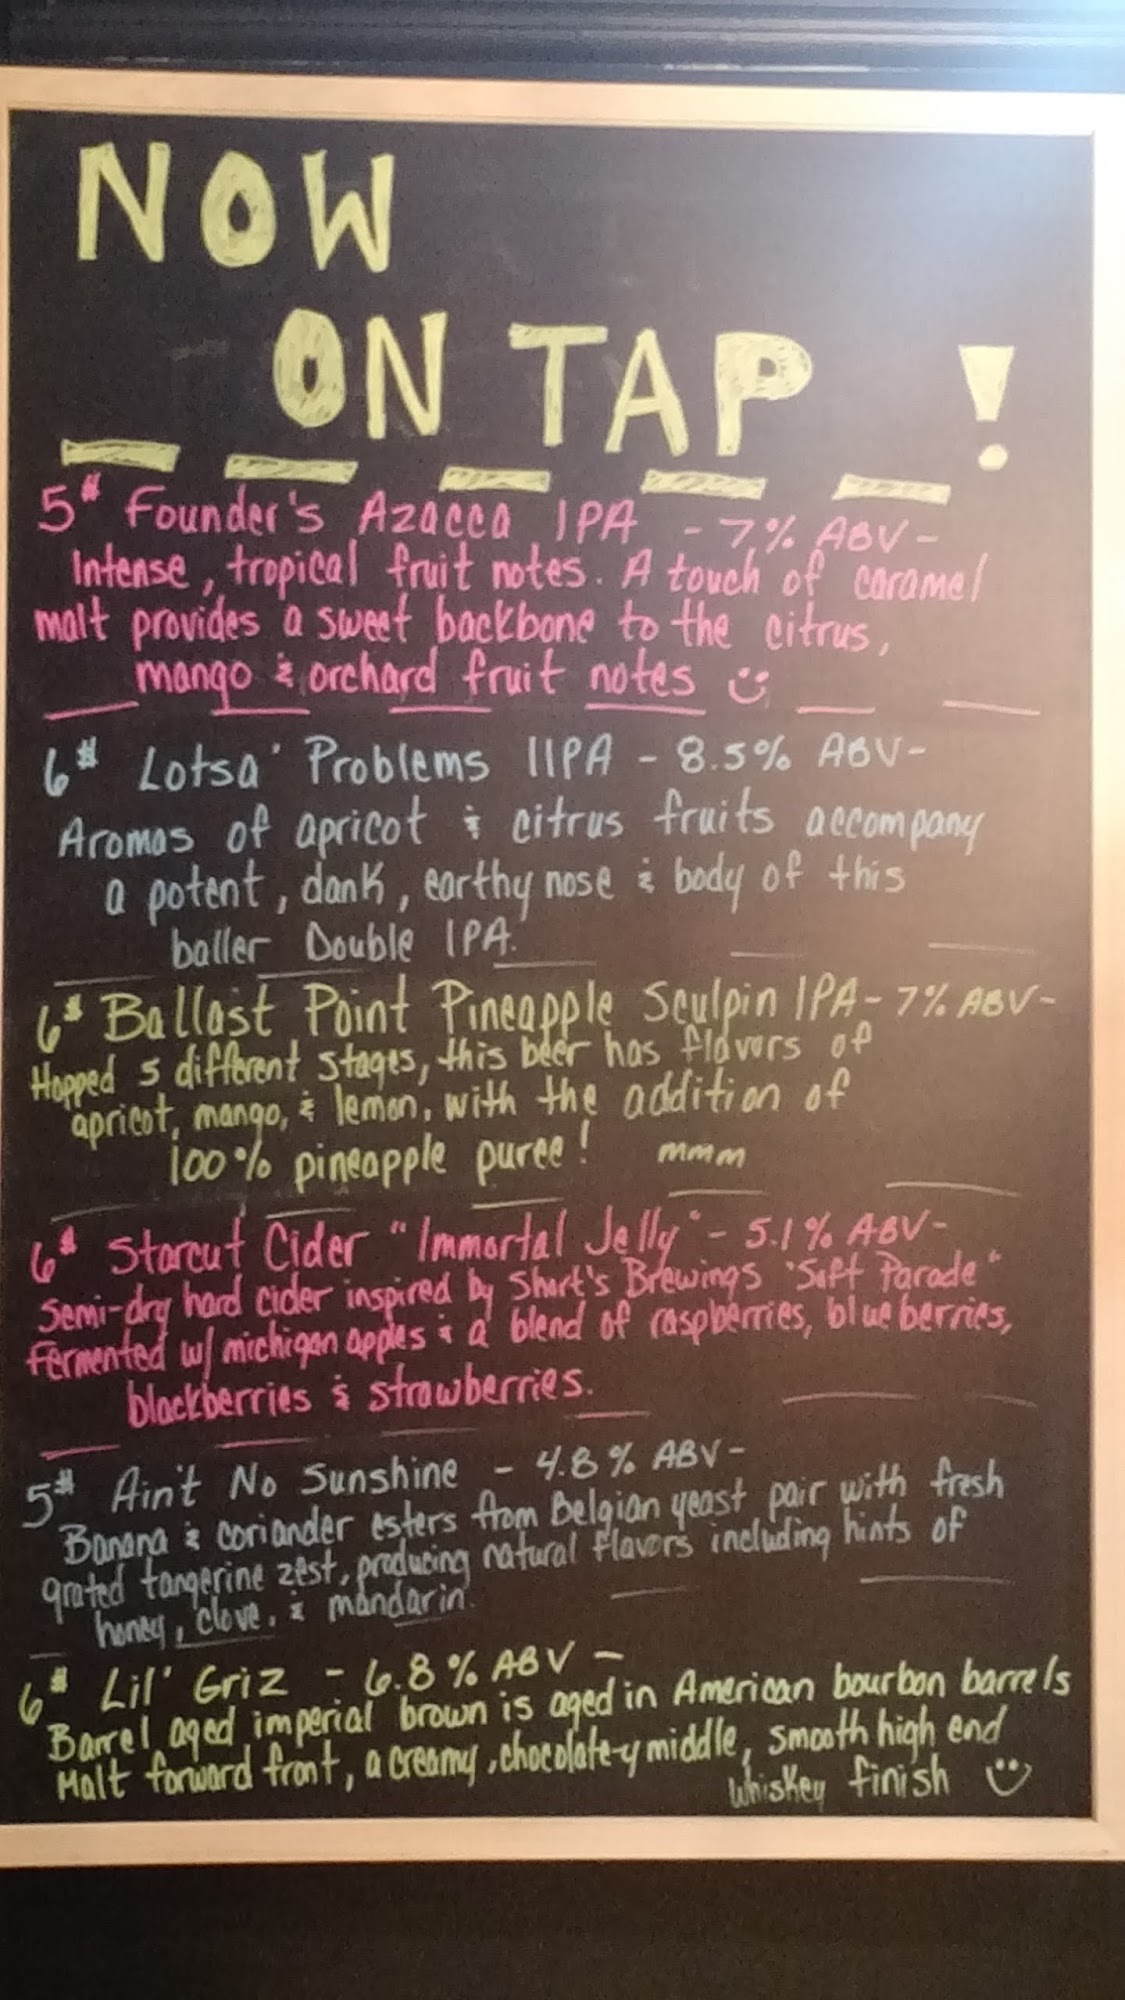 NOW
ON TAP !
5$ Founder's Azacca IPA - 7% ABV -
Intense, tropical fruit notes. A touch of caramel
malt provides a sweet backbone to the citrus,
mango & orchard fruit notes
6$ Lotsa' Problems IIPA - 8.5% ABV -
Aromas of apricot & citrus fruits accompany
a potent, dank, earthy nose & body of this
baller Double IPA.
6$ Ballast Point Pineapple Sculpin IPA - 7% ABV -
Hopped 5 different stages, this beer has flavors of
apricot, mango, & lemon, with the addition of
100% pineapple puree! mmm
6$ Starcut Cider "Immortal Jelly" - 5.1% ABV -
Semi-dry hard cider inspired by Short's Brewings "Soft Parade"
Fermented w/ michigan apples & a blend of raspberries, blueberries,
blackberries & strawberries.
5$ Ain't No Sunshine - 4.8% ABV -
Banana & coriander esters from Belgian yeast pair with fresh
grated tangerine zest, producing natural flavors including hints of
honey, clove, & mandarin.
6$ Lil' Griz - 6.8% ABV -
Barrel aged imperial brown is aged in American bourbon barrels
Malt forward front, a creamy, chocolate-y middle, smooth high end
whiskey finish